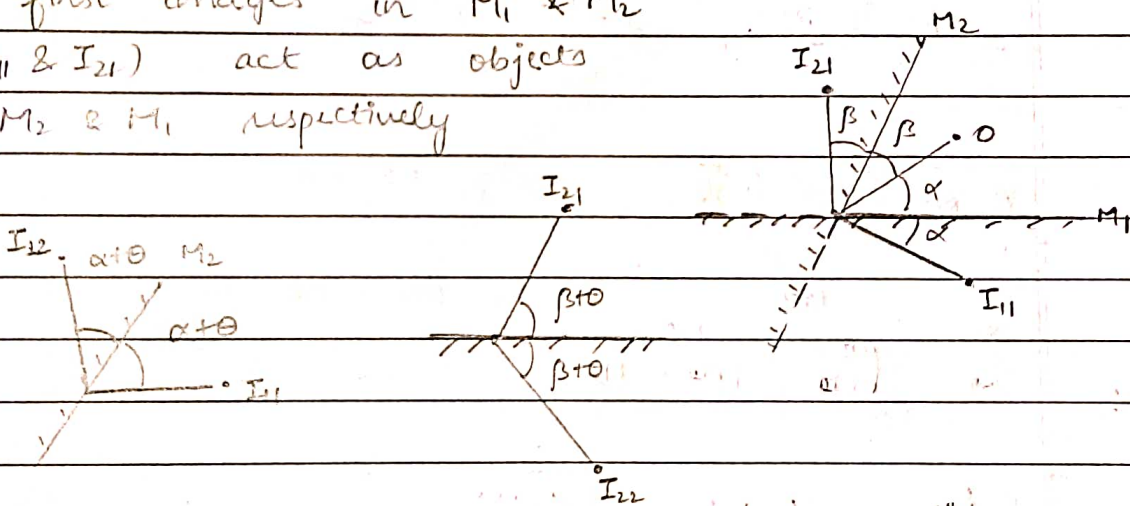 first images in M₁ & M₂
& I₂₁) act as objects
M₂ & M₁ respectively
M₂
I₂₁
β β O
α
M₁
α
I₁₁
I₂₁
β+θ
β+θ
I₂₂
I₂₂ α+θ M₂
α+θ
I₁₁